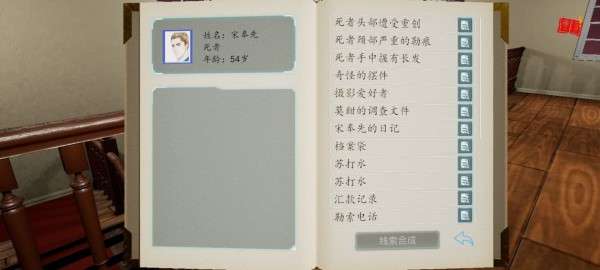 姓名：宋奉先
死者
年龄：54岁
死者头部遭受重创
死者颈部严重的勒痕
死者手中握有长发
奇怪的摆件
摄影爱好者
莫甜的调查文件
宋奉先的日记
档案袋
苏打水
苏打水
汇款记录
勒索电话
线索合成